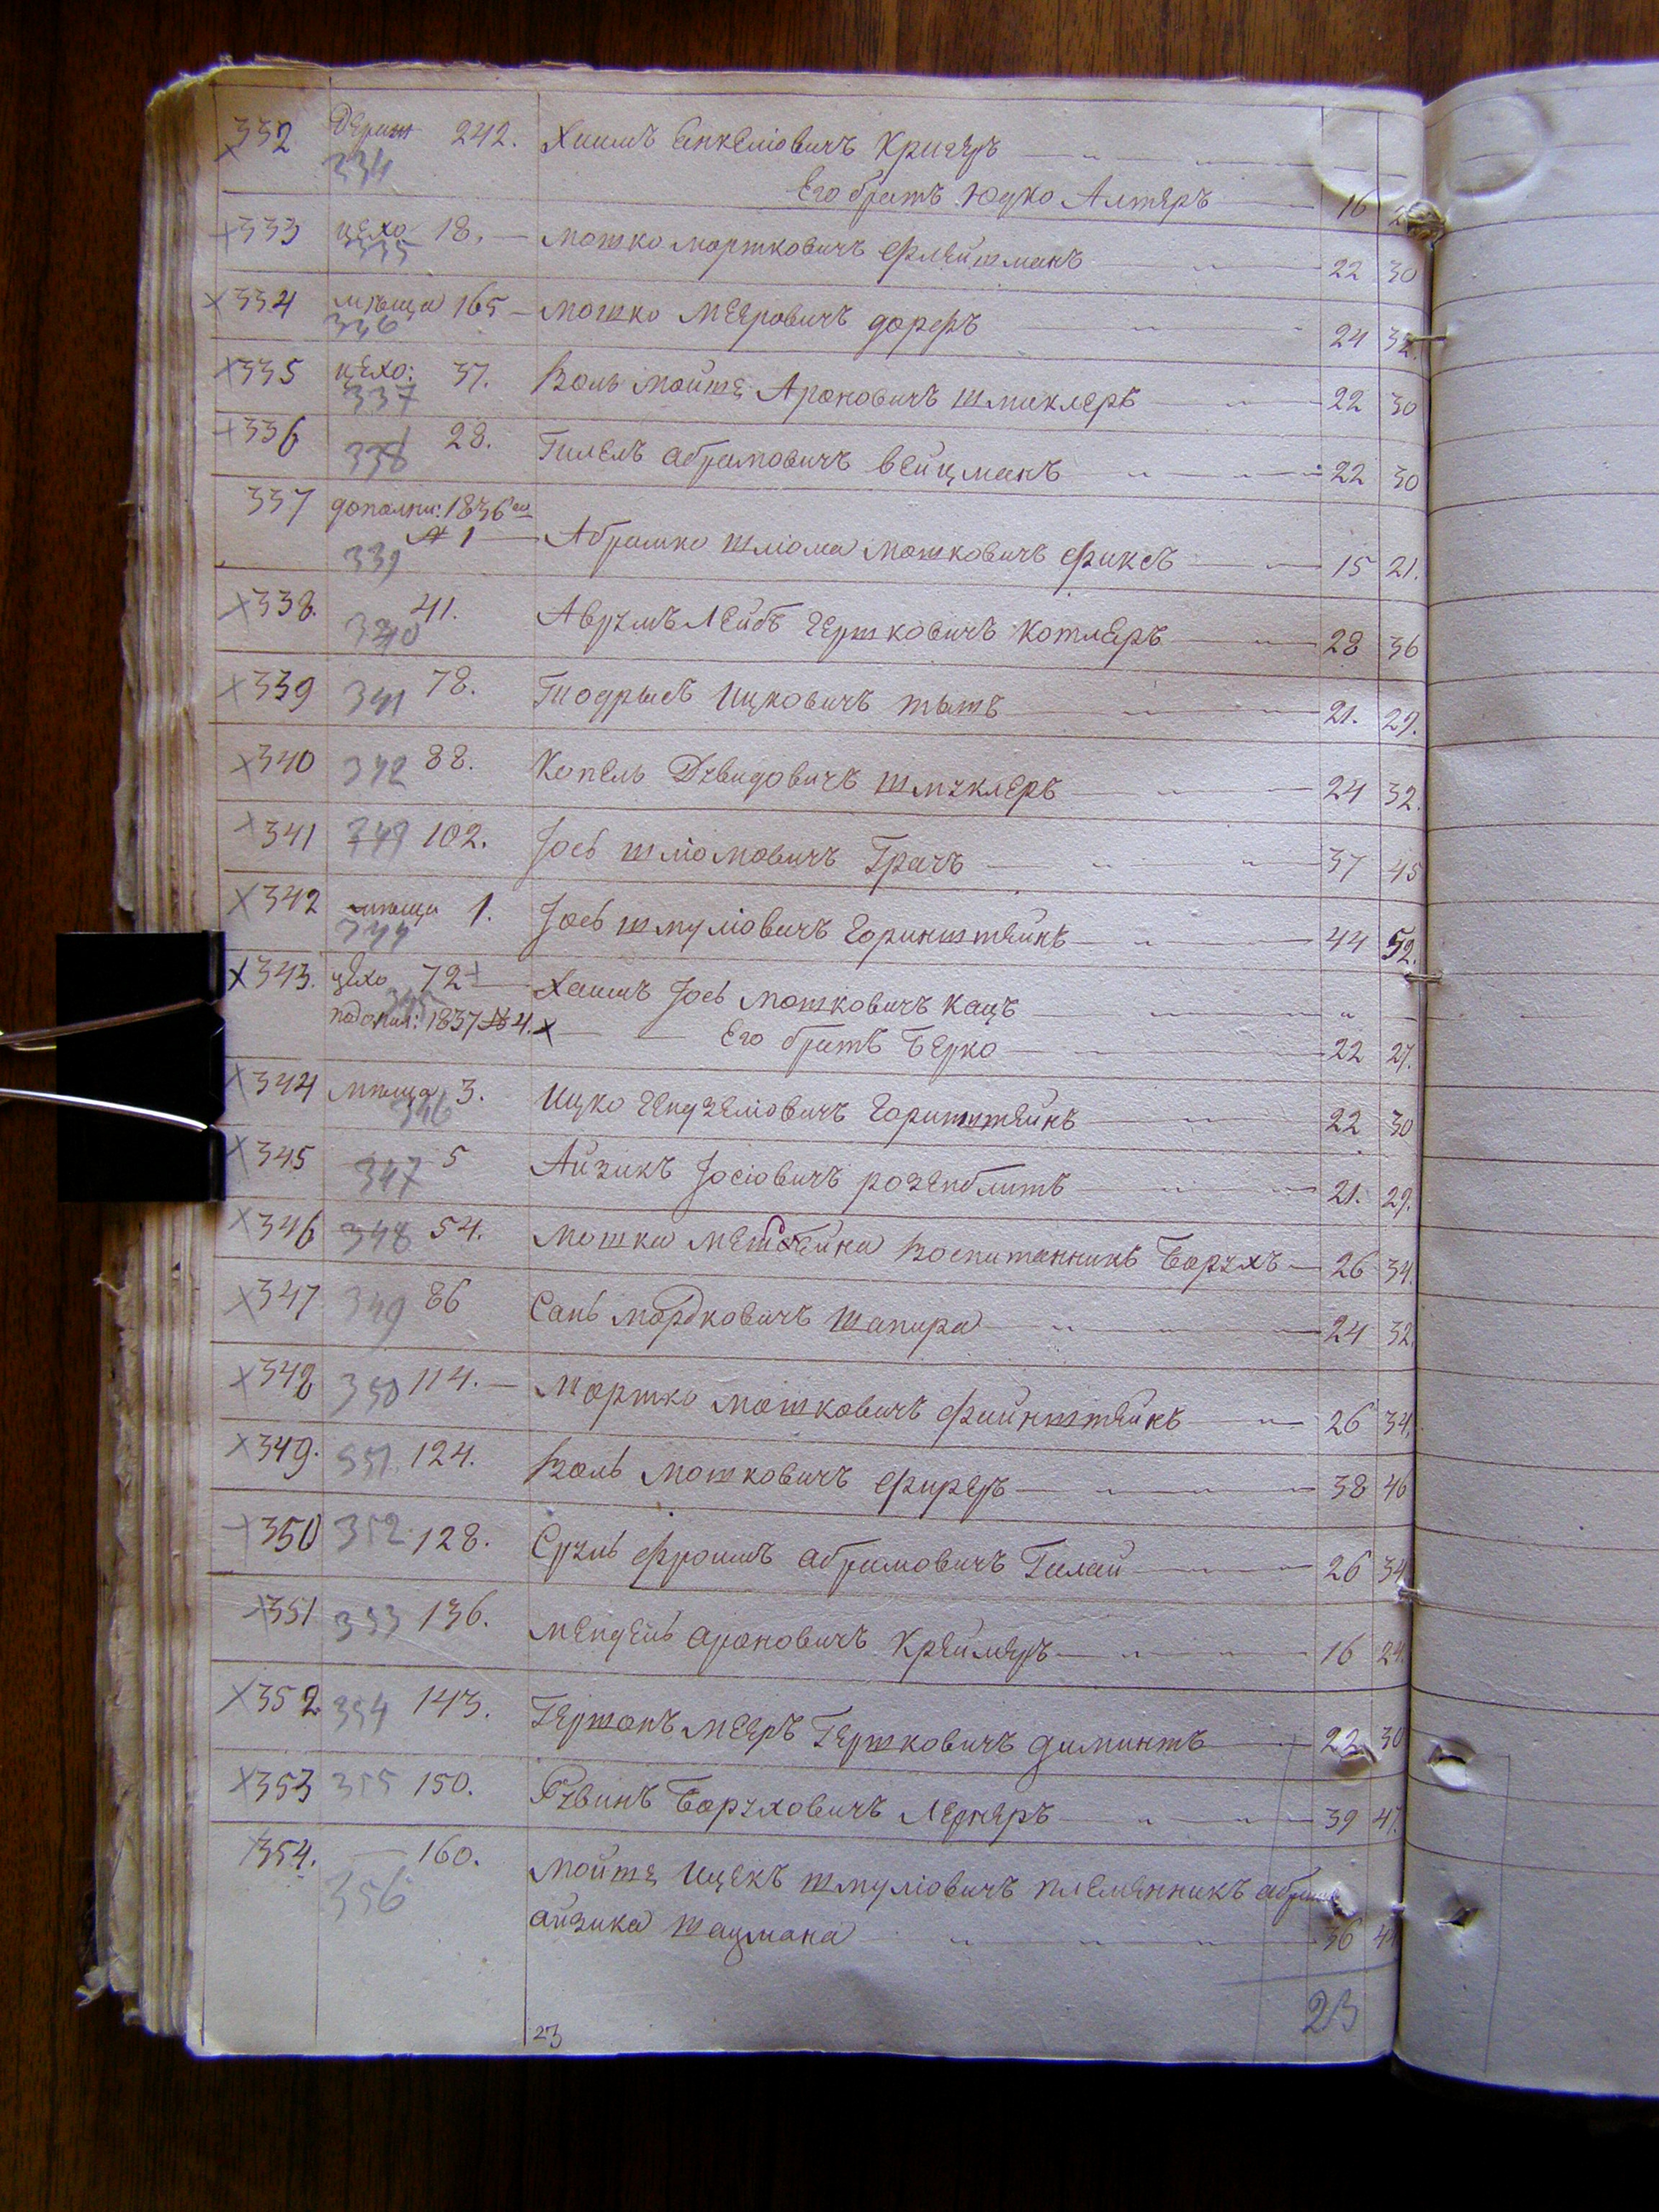 332 242. Хаимъ Янкеліовичъ Кригеръ
334 Его братъ Юдко Алтеръ 16
333 цехо 18. Мошко мортковичъ Флейшманъ 22 30
335
334 мѣща 165 Мошко Мееровичъ Дорфъ 24 32.
336
335 цехо: 37. Воль Мойше Ароновичъ Шмуклеръ 22 30
337
336 28. Гилелъ абрамовичъ Вейцманъ 22 30
338
337 дополни: 1836го
№ 1 Абрамко Шліома Мошковичъ Фуксъ 15 21.
339
338. 41. Аврумъ Лейбъ Гершковичъ Котляръ 28 36
340
339 341 78. Тодрысъ Ицковичъ Тытъ 21. 29.
340 342 88. Копель Дувидовичъ Шмуклеръ 24 32.
341 343 102. Іось Шліомовичъ Грачъ 37 45
342 мѣща 1. Іось Шмуліовичъ Горинштейнъ 44 52.
344
343. цехо 72 Хаимъ Іось Мошковичъ Кацъ
345
1837 № 4. Его братъ Берко 22 27.
344 мѣща 3. Ицко Гендзеліовичъ Горинштейнъ 22 30
346
345 347 5 Айзикъ Іосіовичъ Розенблитъ 21. 29.
346 348 54. Мошка воспитанникъ Борухъ 26 34.
347 349 86 Сань мордковичъ Шапира 24 32.
348 350 114. Мортко Мошковичъ Файнштейнъ 26 34.
349. 351 124. Воль Мошковичъ Фиреръ 38 46
350 352 128. Сруль Фроимъ абрамовичъ 26 34
351 353 136. Мендель ароновичъ Креймеръ 16 24.
352 354 143. Гершонъ Мееръ Гершковичъ Диминтъ 22 30
353 355 150. Рувинъ Боруховичъ Лернеръ 39 47.
354. 160. Мойше Ицекъ Шмуліовичъ племянникъ абрама
356 айзика Шацмана 36 44
23
23